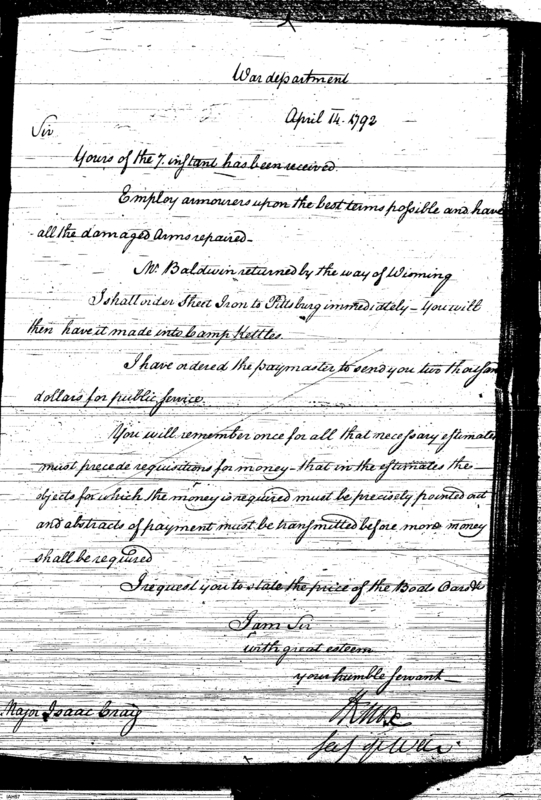 War department
April 14. 1792
Sir
Yours of the 7. instant has been received.
Employ armourers upon the best terms possible and have
all the damaged Arms repaired—
Mr. Baldwin returned by the way of Wioming
I shall order Sheet Iron to Pittsburg immediately— You will
then have it made into Camp Kettles.
I have ordered the paymaster to send you two thousand
dollars for public service.
You will remember once for all that necessary estimates
must precede requisitions for money— that in the estimates the
objects for which the money is required must be precisely pointed out
and abstracts of payment must be transmitted before more money
shall be required
I request you to state the price of the Boats Oars &c
I am Sir
with great esteem
your humble servant—
HKnox
Secy of War
Major Isaac Craig